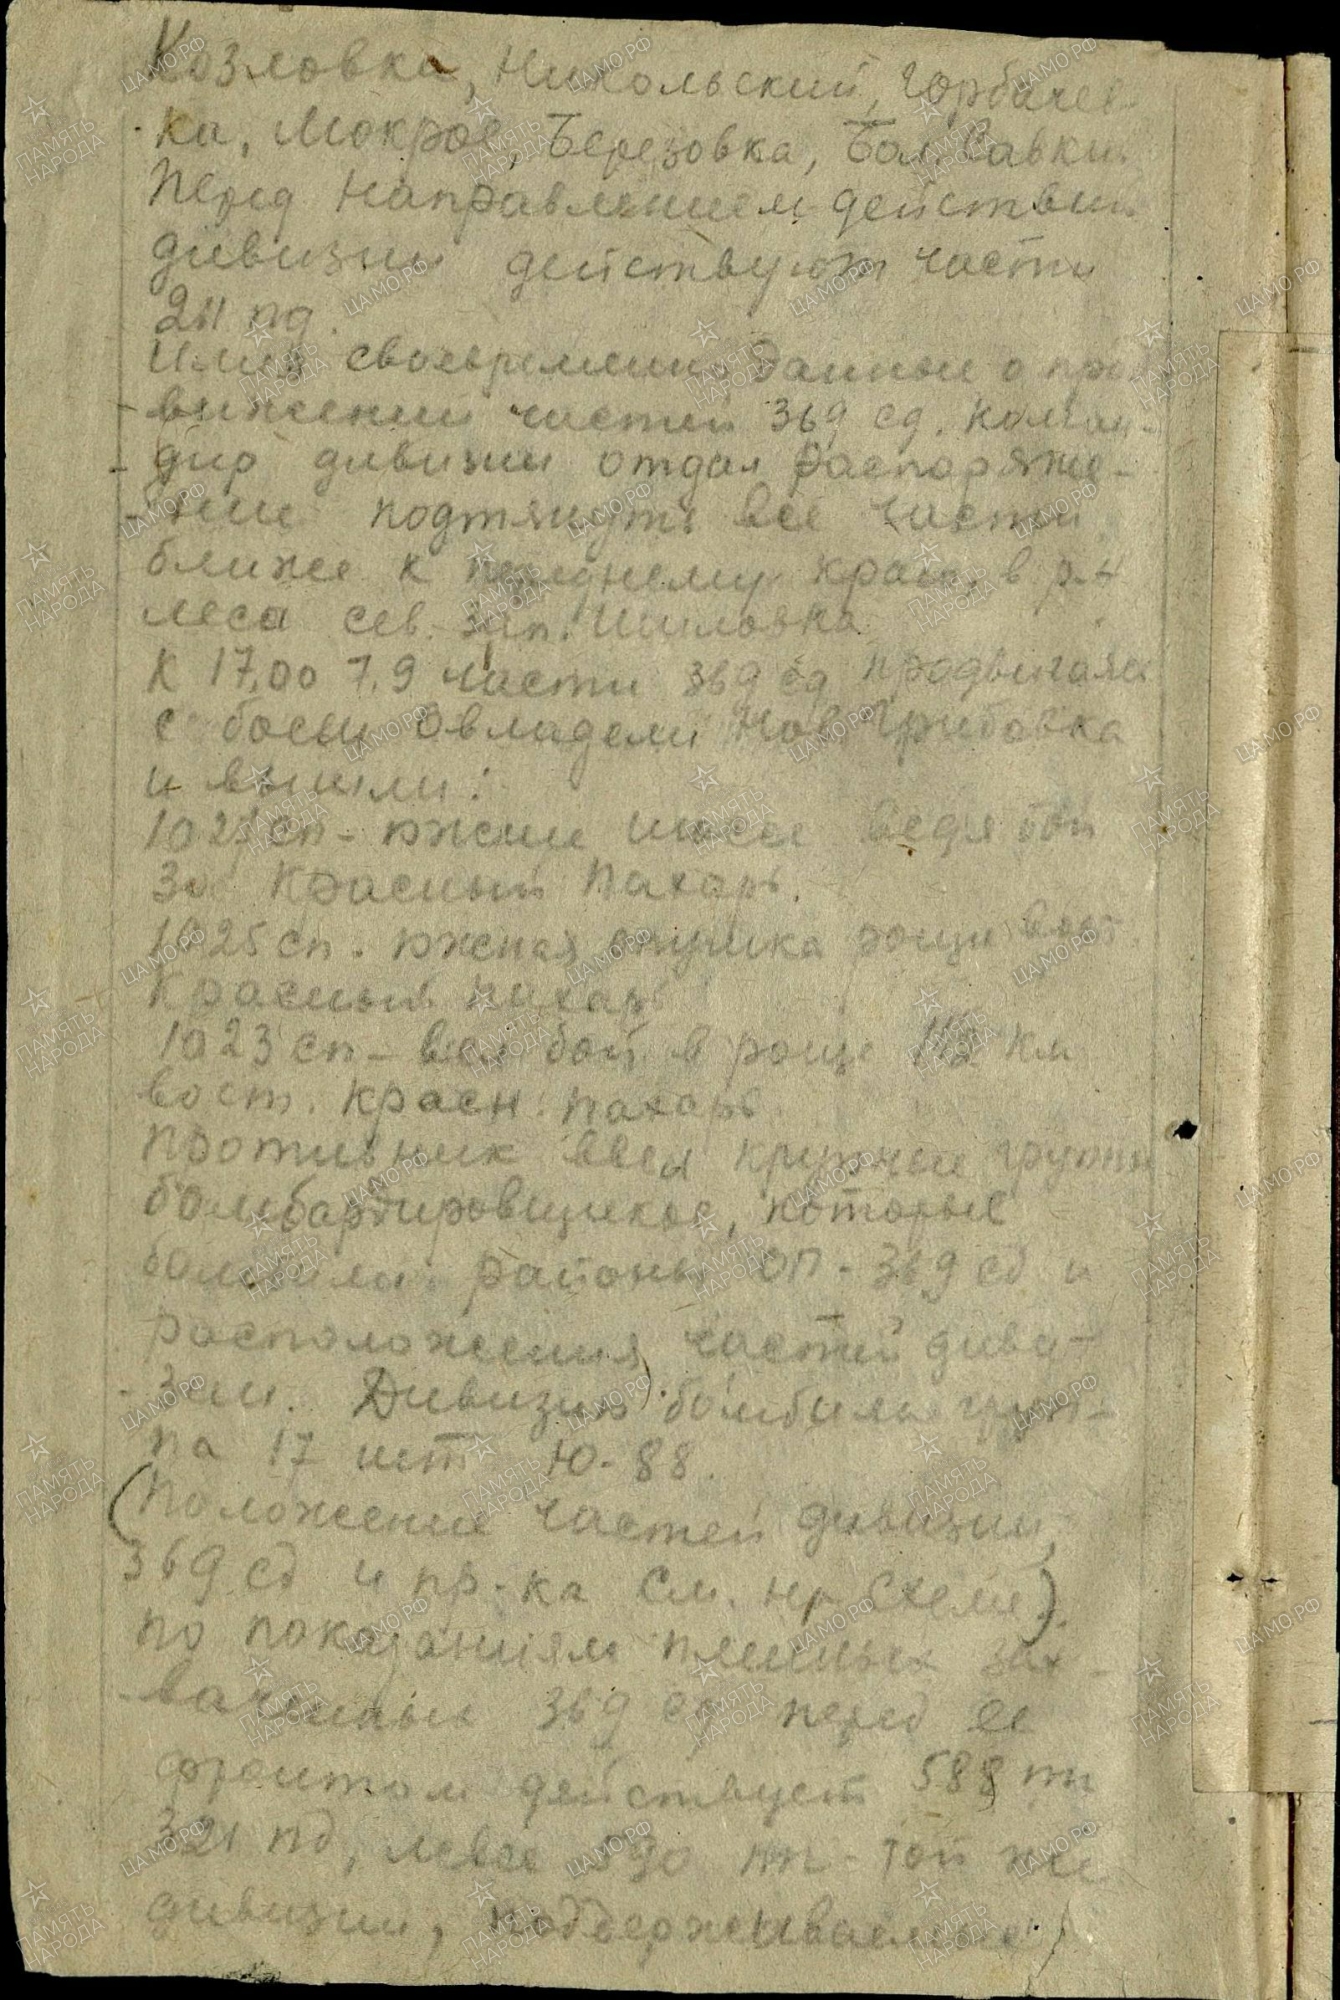 Козловка, Никольский, Горбачев-
ка, Мокрое, Березовка, Бол. Савки.
Перед направлением действий
дивизии действуют части
211 пд.
Имея своевременно данные о прод-
вижении частей 369 сд. коман-
дир дивизии отдал распоряже-
ние подтянуть все части
ближе к переднему краю, в р-н
леса сев. зап. Шиловка
К 17.00 7.9 части 369 сд продвигаясь
с боем овладели Нов. Грибовка
и вышли:
1027 сп - южнее шоссе ведя бой
за Красный Пахарь.
1025 сп. южная опушка рощи вост.
Красный пахарь
1023 сп - вел бой в роще км
вост. Красн. Пахарь
Противник ввел крупные группы
бомбардировщиков, которые
бомбили районы ОП - 369 сд и
расположения частей диви-
зии. Дивизию бомбила груп-
па 17 шт Ю-88.
(Положение частей дивизии,
369 сд и пр-ка См. схеме).
По показаниям пленных зах-
ваченных 369 сд перед ее
фронтом действует 588 пп
321 пд, левее 590 пп - той же
дивизии, поддерживаемые